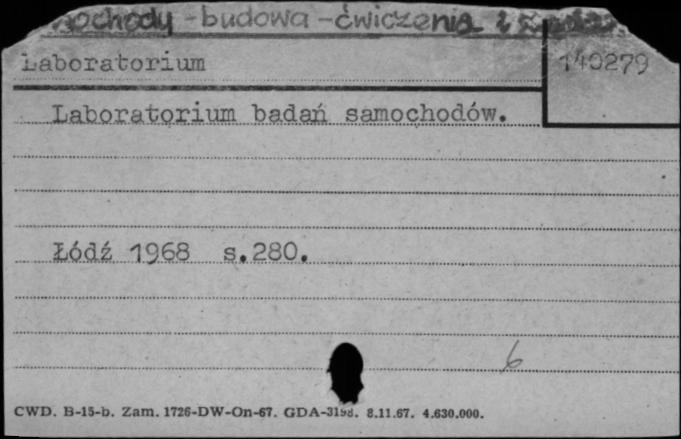 -budowa-ćwiczenia
Laboratorium
140279
Laboratorium badań samochodów.
Łódź 1968 s.280.
6
CWD. B-15-b. Zam. 1726-DW-On-67. GDA-3198. 8.11.67. 4.630.000.